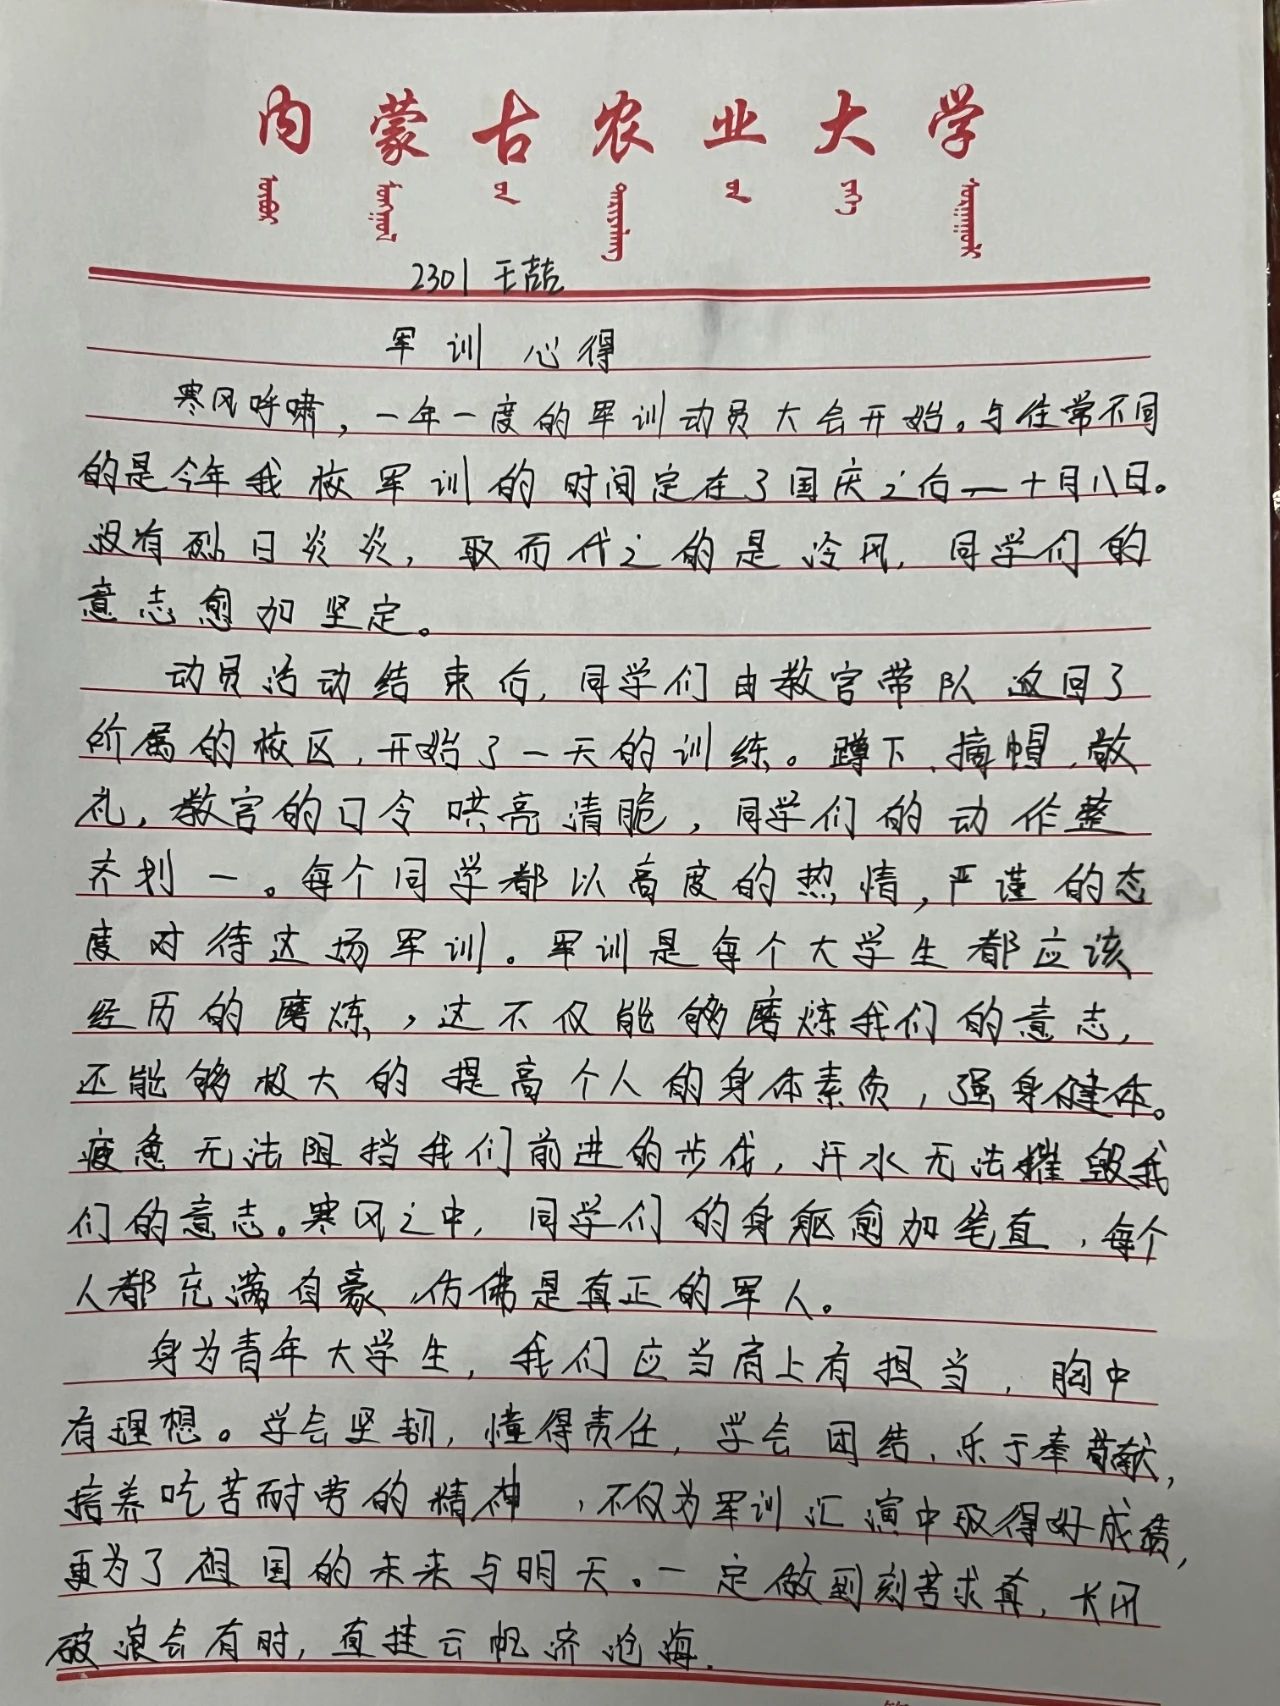 内蒙古农业大学
2301 王喆
军训心得
寒风呼啸，一年一度的军训动员大会开始。与往常不同
的是今年我校军训的时间定在了国庆之后—十月八日。
没有烈日炎炎，取而代之的是冷风，同学们的
意志愈加坚定。
动员活动结束后，同学们由教官带队返回了
所属的校区，开始了一天的训练。蹲下、摘帽、敬
礼，教官的口令哄亮清脆，同学们的动作整
齐划一。每个同学都以高度的热情，严谨的态
度对待这场军训。军训是每个大学生都应该
经历的磨炼，这不仅能够磨炼我们的意志，
还能够极大的提高个人的身体素质，强身健体。
疲惫无法阻挡我们前进的步伐，汗水无法摧毁我
们的意志。寒风之中，同学们的身躯愈加笔直，每个
人都充满自豪，仿佛是真正的军人。
身为青年大学生，我们应当肩上有担当，胸中
有理想。学会坚韧，懂得责任，学会团结，乐于奉献，
培养吃苦耐劳的精神，不仅为军训汇演中取得好成绩，
更为了祖国的未来与明天。一定做到刻苦求真，长风
破浪会有时，直挂云帆济沧海.